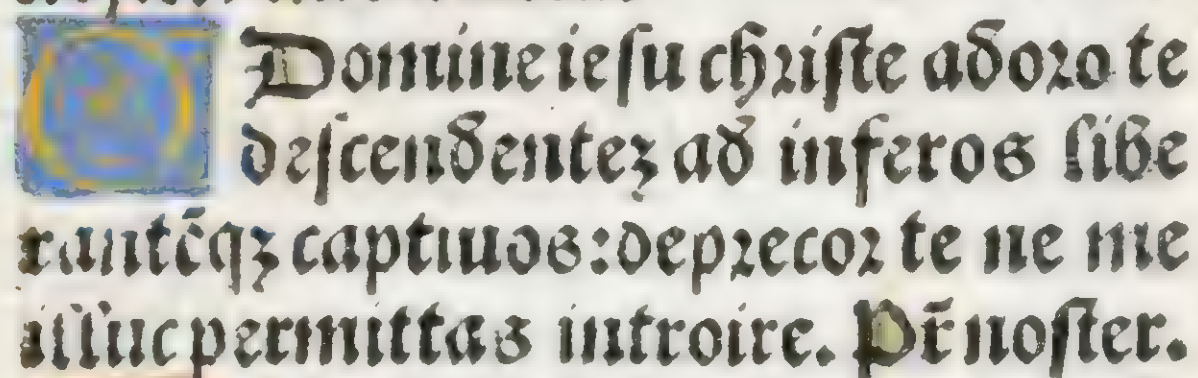 O Domine iesu christe adoro te
descendentez ad inferos libe
rantēqz captiuos: deprecor te ne me
illuc permittas introire. Pr̄ noster.